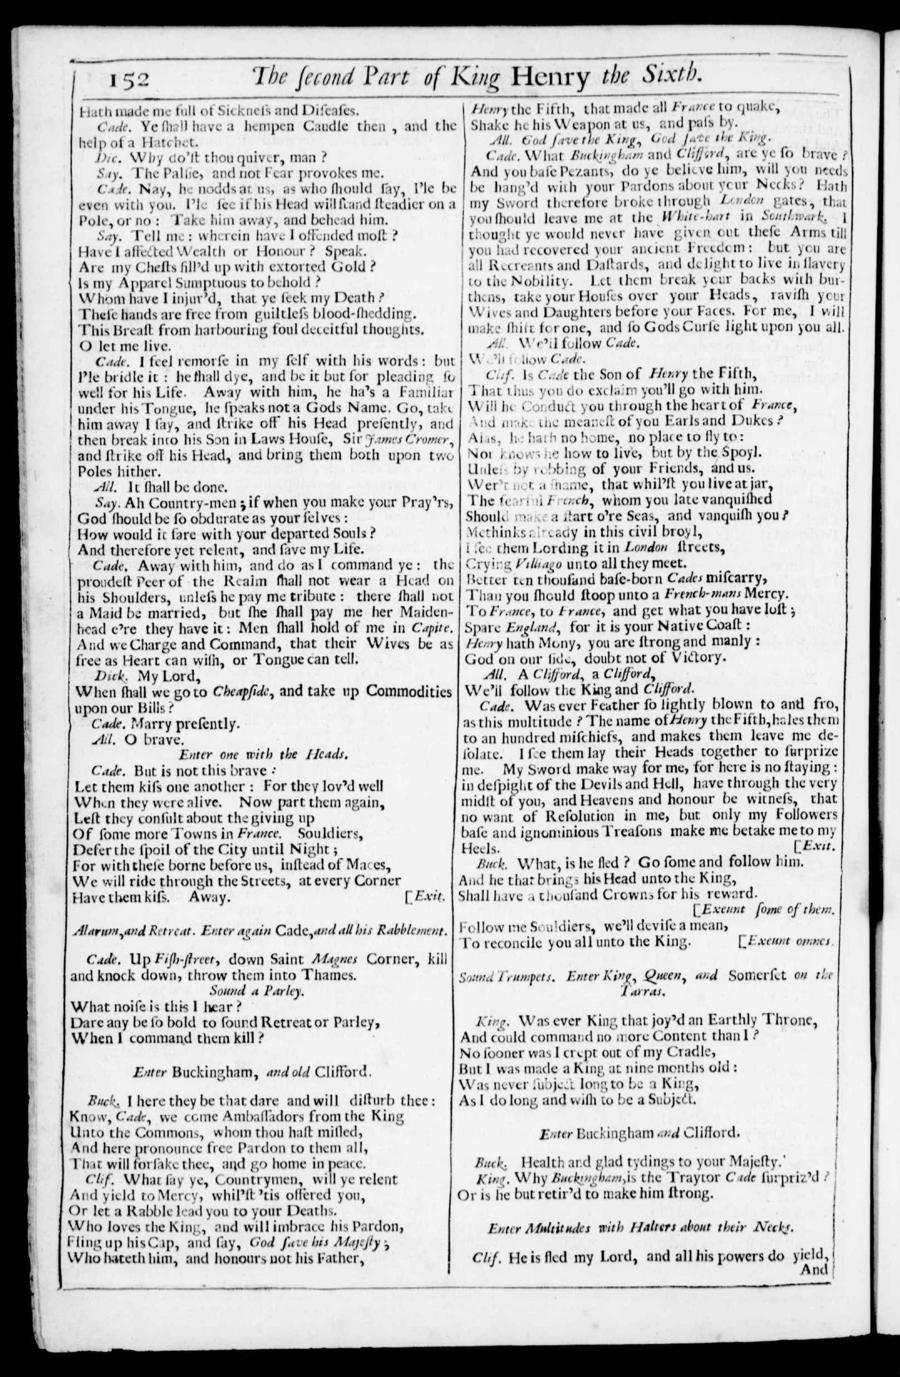 152 The ſecond Part of King Henry the Sixth.
Hath made me full of Sickneſs and Diſeaſes.
Cade. Ye ſhall have a hempen Caudle then , and the
help of a Hatchet.
Dic. Why do'ſt thou quiver, man ?
Say. The Palſie, and not Fear provokes me.
Cade. Nay, he nodds at us, as who ſhould ſay, I'le be
even with you. I'le ſee if his Head will ſtand ſteadier on a
Pole, or no : Take him away, and behead him.
Say. Tell me : wherein have I offended moſt ?
Have I affected Wealth or Honour ? Speak.
Are my Cheſts fill'd up with extorted Gold ?
Is my Apparel Sumptuous to behold ?
Whom have I injur'd, that ye ſeek my Death ?
Theſe hands are free from guiltleſs blood-ſhedding.
This Breaſt from harbouring foul deceitful thoughts.
O let me live.
Cade. I feel remorſe in my ſelf with his words : but
I'le bridle it : he ſhall dye, and be it but for pleading ſo
well for his Life. Away with him, he ha's a Familiar
under his Tongue, he ſpeaks not a Gods Name. Go, take
him away I ſay, and ſtrike off his Head preſently, and
then break into his Son in Laws Houſe, Sir James Cromer,
and ſtrike off his Head, and bring them both upon two
Poles hither.
All. It ſhall be done.
Say. Ah Country-men ; if when you make your Pray'rs,
God ſhould be ſo obdurate as your ſelves :
How would it fare with your departed Souls ?
And therefore yet relent, and ſave my Life.
Cade. Away with him, and do as I command ye : the
proudeſt Peer of the Realm ſhall not wear a Head on
his Shoulders, unleſs he pay me tribute : there ſhall not
a Maid be married, but ſhe ſhall pay me her Maiden-
head e're they have it : Men ſhall hold of me in Capite.
And we Charge and Command, that their Wives be as
free as Heart can wiſh, or Tongue can tell.
Dick. My Lord,
When ſhall we go to Cheapſide, and take up Commodities
upon our Bills ?
Cade. Marry preſently.
All. O brave.
Enter one with the Heads.
Cade. But is not this brave :
Let them kiſs one another : For they lov'd well
When they were alive. Now part them again,
Leſt they conſult about the giving up
Of ſome more Towns in France. Souldiers,
Defer the ſpoil of the City until Night ;
For with theſe borne before us, inſtead of Maces,
We will ride through the Streets, at every Corner
Have them kiſs. Away. [Exit.
Alarum, and Retreat. Enter again Cade, and all his Rabblement.
Cade. Up Fiſh-ſtreet, down Saint Magnes Corner, kill
and knock down, throw them into Thames.
Sound a Parley.
What noiſe is this I hear ?
Dare any be ſo bold to ſound Retreat or Parley,
When I command them kill ?
Enter Buckingham, and old Clifford.
Buck. I here they be that dare and will diſturb thee :
Know, Cade, we come Ambaſſadors from the King
Unto the Commons, whom thou haſt miſled,
And here pronounce free Pardon to them all,
That will forſake thee, and go home in peace.
Clif. What ſay ye, Countrymen, will ye relent
And yield to Mercy, whil'ſt 'tis offered you,
Or let a Rabble lead you to your Deaths.
Who loves the King, and will imbrace his Pardon,
Fling up his Cap, and ſay, God ſave his Majeſty ;
Who hateth him, and honours not his Father,
Henry the Fifth, that made all France to quake,
Shake he his Weapon at us, and paſs by.
All. God ſave the King, God ſave the King.
Cade. What Buckingham and Clifford, are ye ſo brave ?
And you baſe Pezants, do ye believe him, will you needs
be hang'd with your Pardons about your Necks ? Hath
my Sword therefore broke through London gates, that
you ſhould leave me at the White-hart in Southwark. I
thought ye would never have given out theſe Arms till
you had recovered your ancient Freedom : but you are
all Recreants and Daſtards, and delight to live in ſlavery
to the Nobility. Let them break your backs with bur-
thens, take your Houſes over your Heads, raviſh your
Wives and Daughters before your Faces. For me, I will
make ſhift for one, and ſo Gods Curſe light upon you all.
All. We'll follow Cade.
We'll follow Cade.
Clif. Is Cade the Son of Henry the Fifth,
That thus you do exclaim you'll go with him.
Will he Conduct you through the heart of France,
And make the meaneſt of you Earls and Dukes ?
Alas, he hath no home, no place to fly to :
Nor knows he how to live, but by the Spoyl.
Unleſs by robbing of your Friends, and us.
Wer't not a ſhame, that whil'ſt you live at jar,
The fearful French, whom you late vanquiſhed
Should make a ſtart o're Seas, and vanquiſh you ?
Methinks already in this civil broyl,
I ſee them Lording it in London ſtreets,
Crying Villiago unto all they meet.
Better ten thouſand baſe-born Cades miſcarry,
Than you ſhould ſtoop unto a French-mans Mercy.
To France, to France, and get what you have loſt ;
Spare England, for it is your Native Coaſt :
Henry hath Mony, you are ſtrong and manly :
God on our ſide, doubt not of Victory.
All. A Clifford, a Clifford,
We'll follow the King and Clifford.
Cade. Was ever Feather ſo lightly blown to and fro,
as this multitude ? The name of Henry the Fifth, hales them
to an hundred miſchiefs, and makes them leave me de-
ſolate. I ſee them lay their Heads together to ſurprize
me. My Sword make way for me, for here is no ſtaying :
in deſpight of the Devils and Hell, have through the very
midſt of you, and Heavens and honour be witneſs, that
no want of Reſolution in me, but only my Followers
baſe and ignominious Treaſons make me betake me to my
Heels. [Exit.
Buck. What, is he fled ? Go ſome and follow him.
And he that brings his Head unto the King,
Shall have a thouſand Crowns for his reward.
[Exeunt ſome of them.
Follow me Souldiers, we'll deviſe a mean,
To reconcile you all unto the King. [Exeunt omnes.
Sound Trumpets. Enter King, Queen, and Somerſet on the
Tarras.
King. Was ever King that joy'd an Earthly Throne,
And could command no more Content than I ?
No ſooner was I crept out of my Cradle,
But I was made a King at nine months old :
Was never ſubject long to be a King,
As I do long and wiſh to be a Subject.
Enter Buckingham and Clifford.
Buck. Health and glad tydings to your Majeſty.
King. Why Buckingham, is the Traytor Cade ſurpriz'd ?
Or is he but retir'd to make him ſtrong.
Enter Multitudes with Halters about their Necks.
Clif. He is fled my Lord, and all his powers do yield,
And